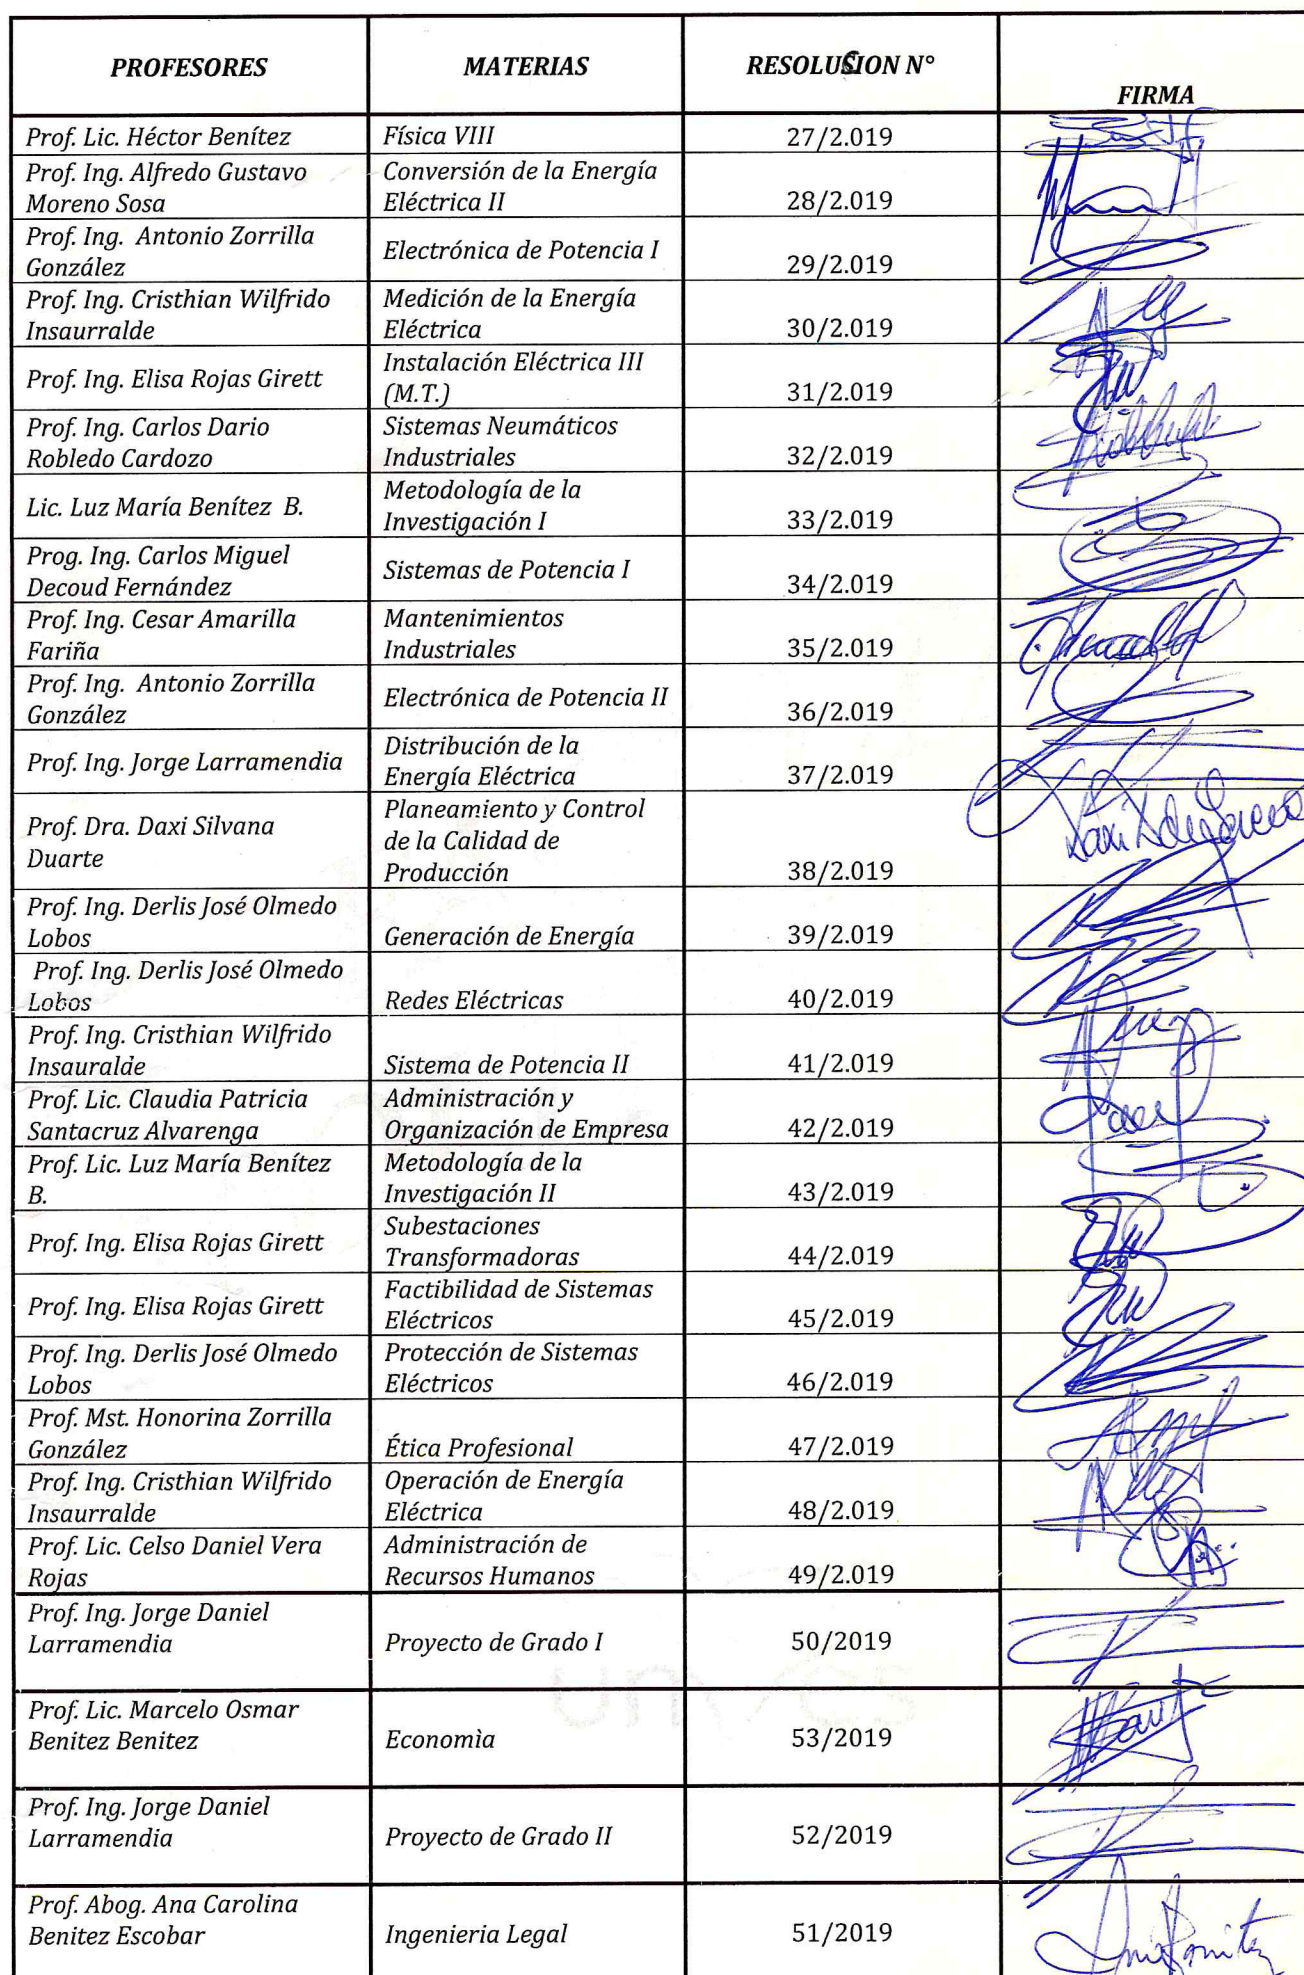 PROFESORES MATERIAS RESOLUCION N° FIRMA
Prof. Lic. Héctor Benítez Física VIII 27/2.019
Prof. Ing. Alfredo Gustavo Conversión de la Energía
Moreno Sosa Eléctrica II 28/2.019
Prof. Ing. Antonio Zorrilla Electrónica de Potencia I
González 29/2.019
Prof. Ing. Cristhian Wilfrido Medición de la Energía
Insaurralde Eléctrica 30/2.019
Prof. Ing. Elisa Rojas Girett Instalación Eléctrica III
(M.T.) 31/2.019
Prof. Ing. Carlos Dario Sistemas Neumáticos
Robledo Cardozo Industriales 32/2.019
Lic. Luz María Benítez B. Metodología de la
Investigación I 33/2.019
Prog. Ing. Carlos Miguel Sistemas de Potencia I
Decoud Fernández 34/2.019
Prof. Ing. Cesar Amarilla Mantenimientos
Fariña Industriales 35/2.019
Prof. Ing. Antonio Zorrilla Electrónica de Potencia II
González 36/2.019
Prof. Ing. Jorge Larramendia Distribución de la
Energía Eléctrica 37/2.019
Prof. Dra. Daxi Silvana Planeamiento y Control
Duarte de la Calidad de
Producción 38/2.019
Prof. Ing. Derlis José Olmedo
Lobos Generación de Energía 39/2.019
Prof. Ing. Derlis José Olmedo
Lobos Redes Eléctricas 40/2.019
Prof. Ing. Cristhian Wilfrido
Insauralde Sistema de Potencia II 41/2.019
Prof. Lic. Claudia Patricia Administración y
Santacruz Alvarenga Organización de Empresa 42/2.019
Prof. Lic. Luz María Benítez Metodología de la
B. Investigación II 43/2.019
Prof. Ing. Elisa Rojas Girett Subestaciones
Transformadoras 44/2.019
Prof. Ing. Elisa Rojas Girett Factibilidad de Sistemas
Eléctricos 45/2.019
Prof. Ing. Derlis José Olmedo Protección de Sistemas
Lobos Eléctricos 46/2.019
Prof. Mst. Honorina Zorrilla
González Ética Profesional 47/2.019
Prof. Ing. Cristhian Wilfrido Operación de Energía
Insaurralde Eléctrica 48/2.019
Prof. Lic. Celso Daniel Vera Administración de
Rojas Recursos Humanos 49/2.019
Prof. Ing. Jorge Daniel
Larramendia Proyecto de Grado I 50/2019
Prof. Lic. Marcelo Osmar
Benitez Benitez Economìa 53/2019
Prof. Ing. Jorge Daniel
Larramendia Proyecto de Grado II 52/2019
Prof. Abog. Ana Carolina
Benitez Escobar Ingenieria Legal 51/2019